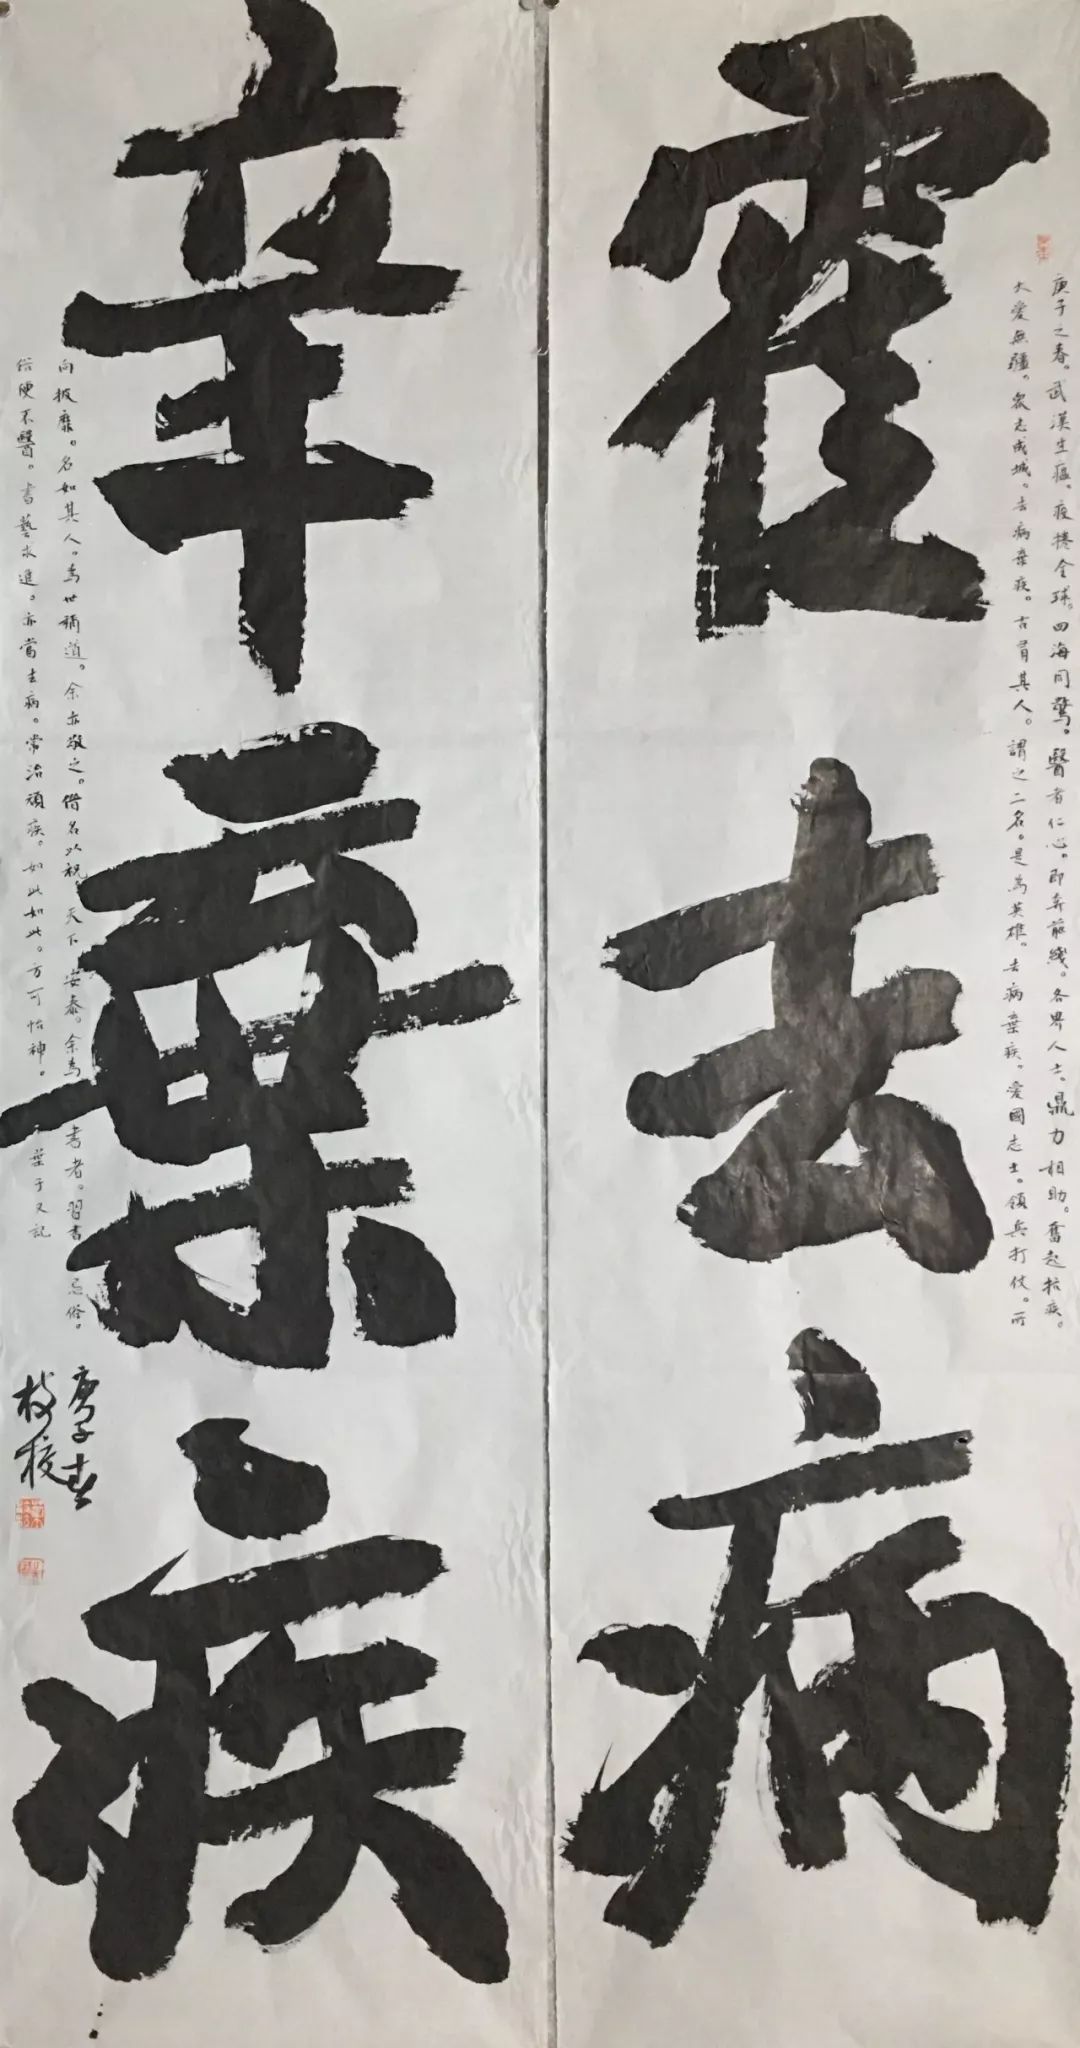 霍去病
庚子之春。武漢生瘟。疫捲全球。四海同驚。醫者仁心。即奔前綫。各界人士。鼎力相助。奮起抗疾。
大愛無疆。衆志成城。去病棄疾。古有其人。謂之二名。是為英雄。去病棄疾。愛國志士。領兵打仗。所
辛棄疾
向披靡。名如其人。為世稱道。余亦敬之。借名以祝 天下 安泰。余為 書者。習書 忌俗。
俗便不醫。書藝求進。亦當去病。常治頑疾。如此如此。方可怡神。 葉子又記
庚子春